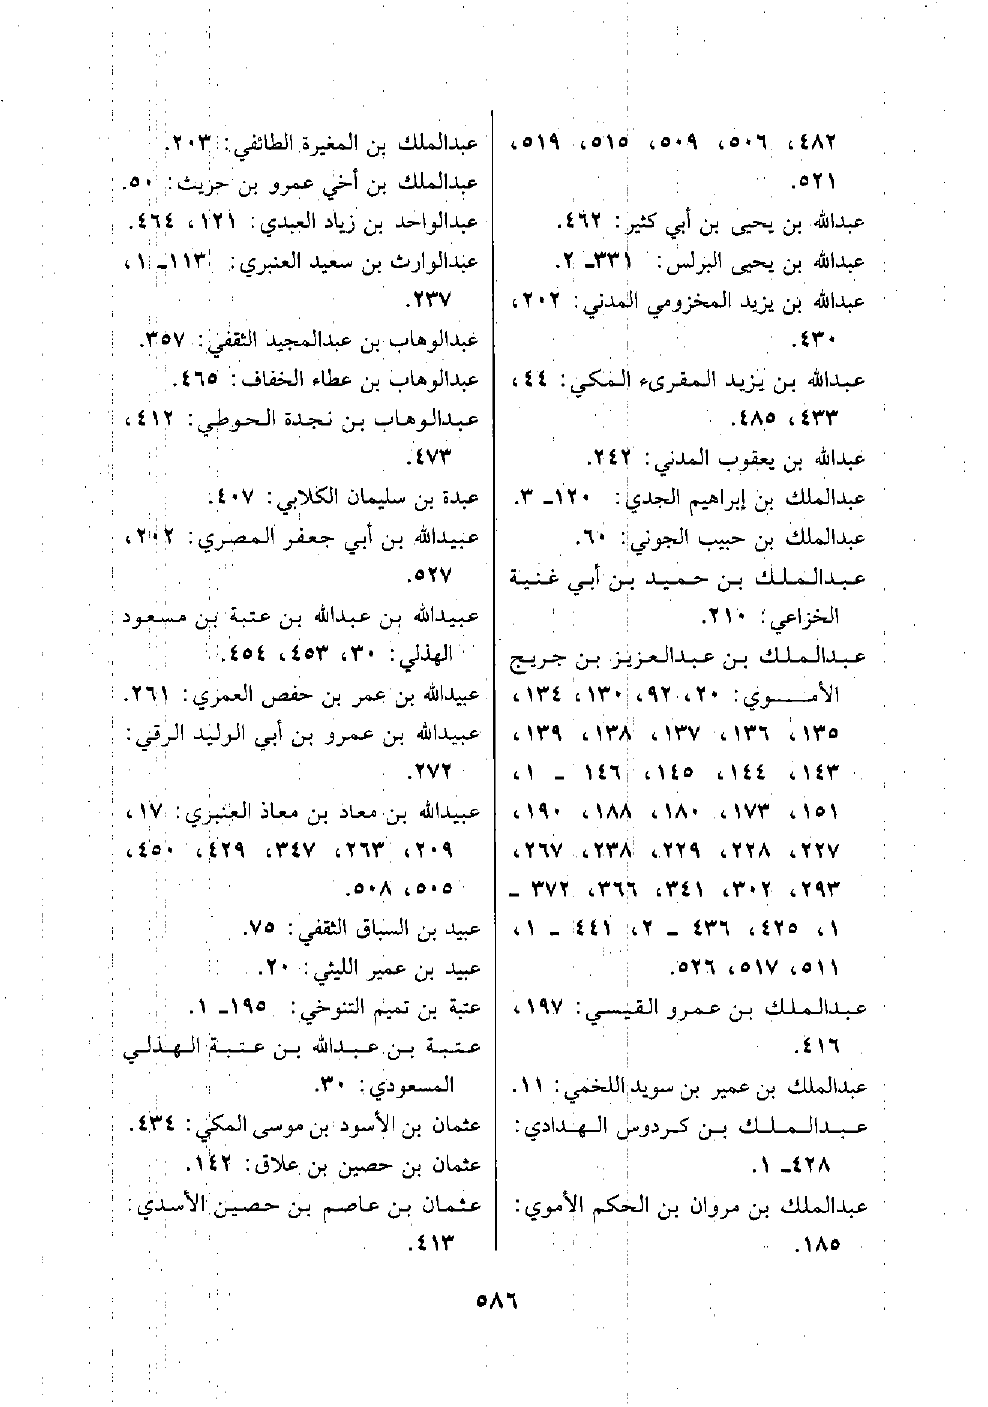 ٤٨٢، ٥٠٦، ٥٠٩، ٥١٥، ٥١٩،
٥٢١.
عبدالله بن يحيى بن أبي كثير: ٤٦٢.
عبدالله بن يحيى البرلس: ٣٣١ـ ٢.
عبدالله بن يزيد المخزومي المدني: ٢٠٢،
٤٣٠.
عبدالله بن يزيد المقرىء المكي: ٤٤،
٤٣٣، ٤٨٥.
عبدالله بن يعقوب المدني: ٢٤٢.
عبدالملك بن إبراهيم الجدي: ١٢٠ـ ٣.
عبدالملك بن حبيب الجوني: ٦٠.
عبدالملك بن حميد بن أبي غنية
الخزاعي: ٢١٠.
عبدالملك بن عبدالعزيز بن جريج
الأموي: ٢٠، ٩٢، ١٣٠، ١٣٤،
١٣٥، ١٣٦، ١٣٧، ١٣٨، ١٣٩،
١٤٣، ١٤٤، ١٤٥، ١٤٦ ـ ١،
١٥١، ١٧٣، ١٨٠، ١٨٨، ١٩٠،
٢٢٧، ٢٢٨، ٢٢٩، ٢٣٨، ٢٦٧،
٢٩٣، ٣٠٢، ٣٤١، ٣٦٦، ٣٧٢ ـ
١، ٤٢٥، ٤٣٦ ـ ٢، ٤٤١ ـ ١،
٥١١، ٥١٧، ٥٢٦.
عبدالملك بن عمرو القيسي: ١٩٧،
٤١٦.
عبدالملك بن عمير بن سويد اللخمي: ١١.
عبدالملك بن كردوس الهدادي:
٤٢٨ـ ١.
عبدالملك بن مروان بن الحكم الأموي:
١٨٥.
عبدالملك بن المغيرة الطائفي: ٢٠٣.
عبدالملك بن أخي عمرو بن حريث: ٥٠.
عبدالواحد بن زياد العبدي: ١٢١، ٤٦٤.
عبدالوارث بن سعيد العنبري: ١١٣ـ ١،
٢٣٧.
عبدالوهاب بن عبدالمجيد الثقفي: ٣٥٧.
عبدالوهاب بن عطاء الخفاف: ٤٦٥.
عبدالوهاب بن نجدة الحوطي: ٤١٢،
٤٧٣.
عبدة بن سليمان الكلابي: ٤٠٧.
عبيدالله بن أبي جعفر المصري: ٢٠٢،
٥٢٧.
عبيدالله بن عبدالله بن عتبة بن مسعود
الهذلي: ٣٠، ٤٥٣، ٤٥٤.
عبيدالله بن عمر بن حفص العمري: ٢٦١.
عبيدالله بن عمرو بن أبي الوليد الرقي:
٢٧٢.
عبيدالله بن معاد بن معاذ العنبري: ١٧،
٢٠٩، ٢٦٣، ٣٤٧، ٤٢٩، ٤٥٠،
٥٠٥، ٥٠٨.
عبيد بن السباق الثقفي: ٧٥.
عبيد بن عمير الليثي: ٢٠.
عتبة بن تميم التنوخي: ١٩٥ـ ١.
عتبة بن عبدالله بن عتبة الهذلي
المسعودي: ٣٠.
عثمان بن الأسود بن موسى المكي: ٤٣٤.
عثمان بن حصين بن علاق: ١٤٢.
عثمان بن عاصم بن حصين الأسدي:
٤١٣.
٥٨٦